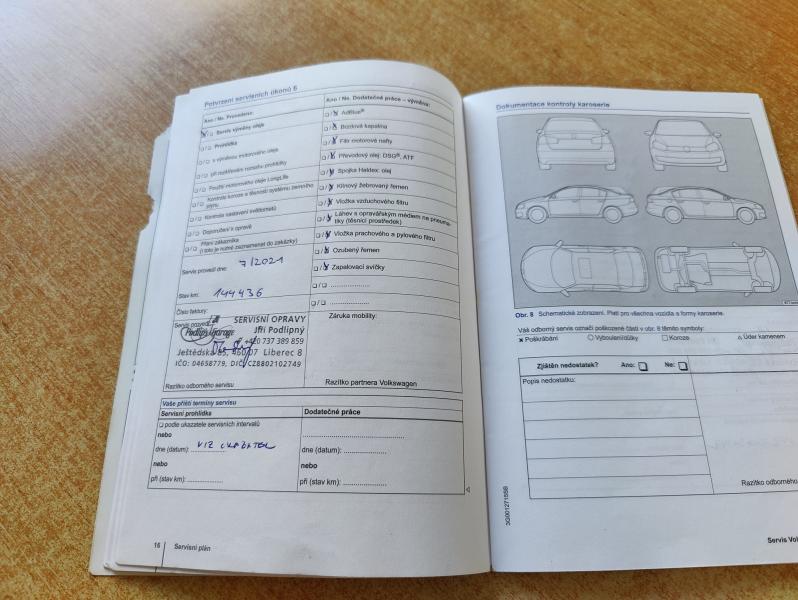 Potvrzení servisních úkonů 6
Ano / Ne, Provedeno:
Servis výměny oleje
Prohlídka
s výměnou motorového oleje
při rozšířeném rozsahu prohlídky
Použití motorového oleje LongLife
Kontrola koroze a těsnosti systému zemního plynu
Kontrola nastavení světlometů
Doporučení k opravě
Přání zákazníka
(i toto je nutné zaznamenat do zakázky)
Servis provedl dne: 7/2021
Stav km: 144436
Číslo faktury:
Servis provedl
SERVISNÍ OPRAVY
Podlip's Garage
Jiří Podlipný
+420 737 389 859
Ještědská 85, 460 07 Liberec 8
IČO: 04658779, DIČ: CZ8802102749
Razítko odborného servisu
Ano / Ne, Dodatečné práce – výměna:
AdBlue®
Brzdová kapalina
Filtr motorové nafty
Převodový olej: DSG®, ATF
Spojka Haldex: olej
Klínový žebrovaný řemen
Vložka vzduchového filtru
Láhev s opravářským médiem na pneumatiky (těsnicí prostředek)
Vložka prachového a pylového filtru
Ozubený řemen
Zapalovací svíčky
Záruka mobility:
Razítko partnera Volkswagen
Vaše příští termíny servisu
Servisní prohlídka
podle ukazatele servisních intervalů
nebo
dne (datum): VIZ UKAZATEL
nebo
při (stav km):
Dodatečné práce
dne (datum):
nebo
při (stav km):
16 Servisní plán
Dokumentace kontroly karoserie
Obr. 8 Schematické zobrazení. Platí pro všechna vozidla a formy karoserie.
Váš odborný servis označí poškozené části v obr. 8 těmito symboly:
Poškrábání Vyboulení/důlky Koroze Úder kamenem
Zjištěn nedostatek? Ano: Ne:
Popis nedostatku:
Razítko odborného
3G0012715SB
Servis Vol